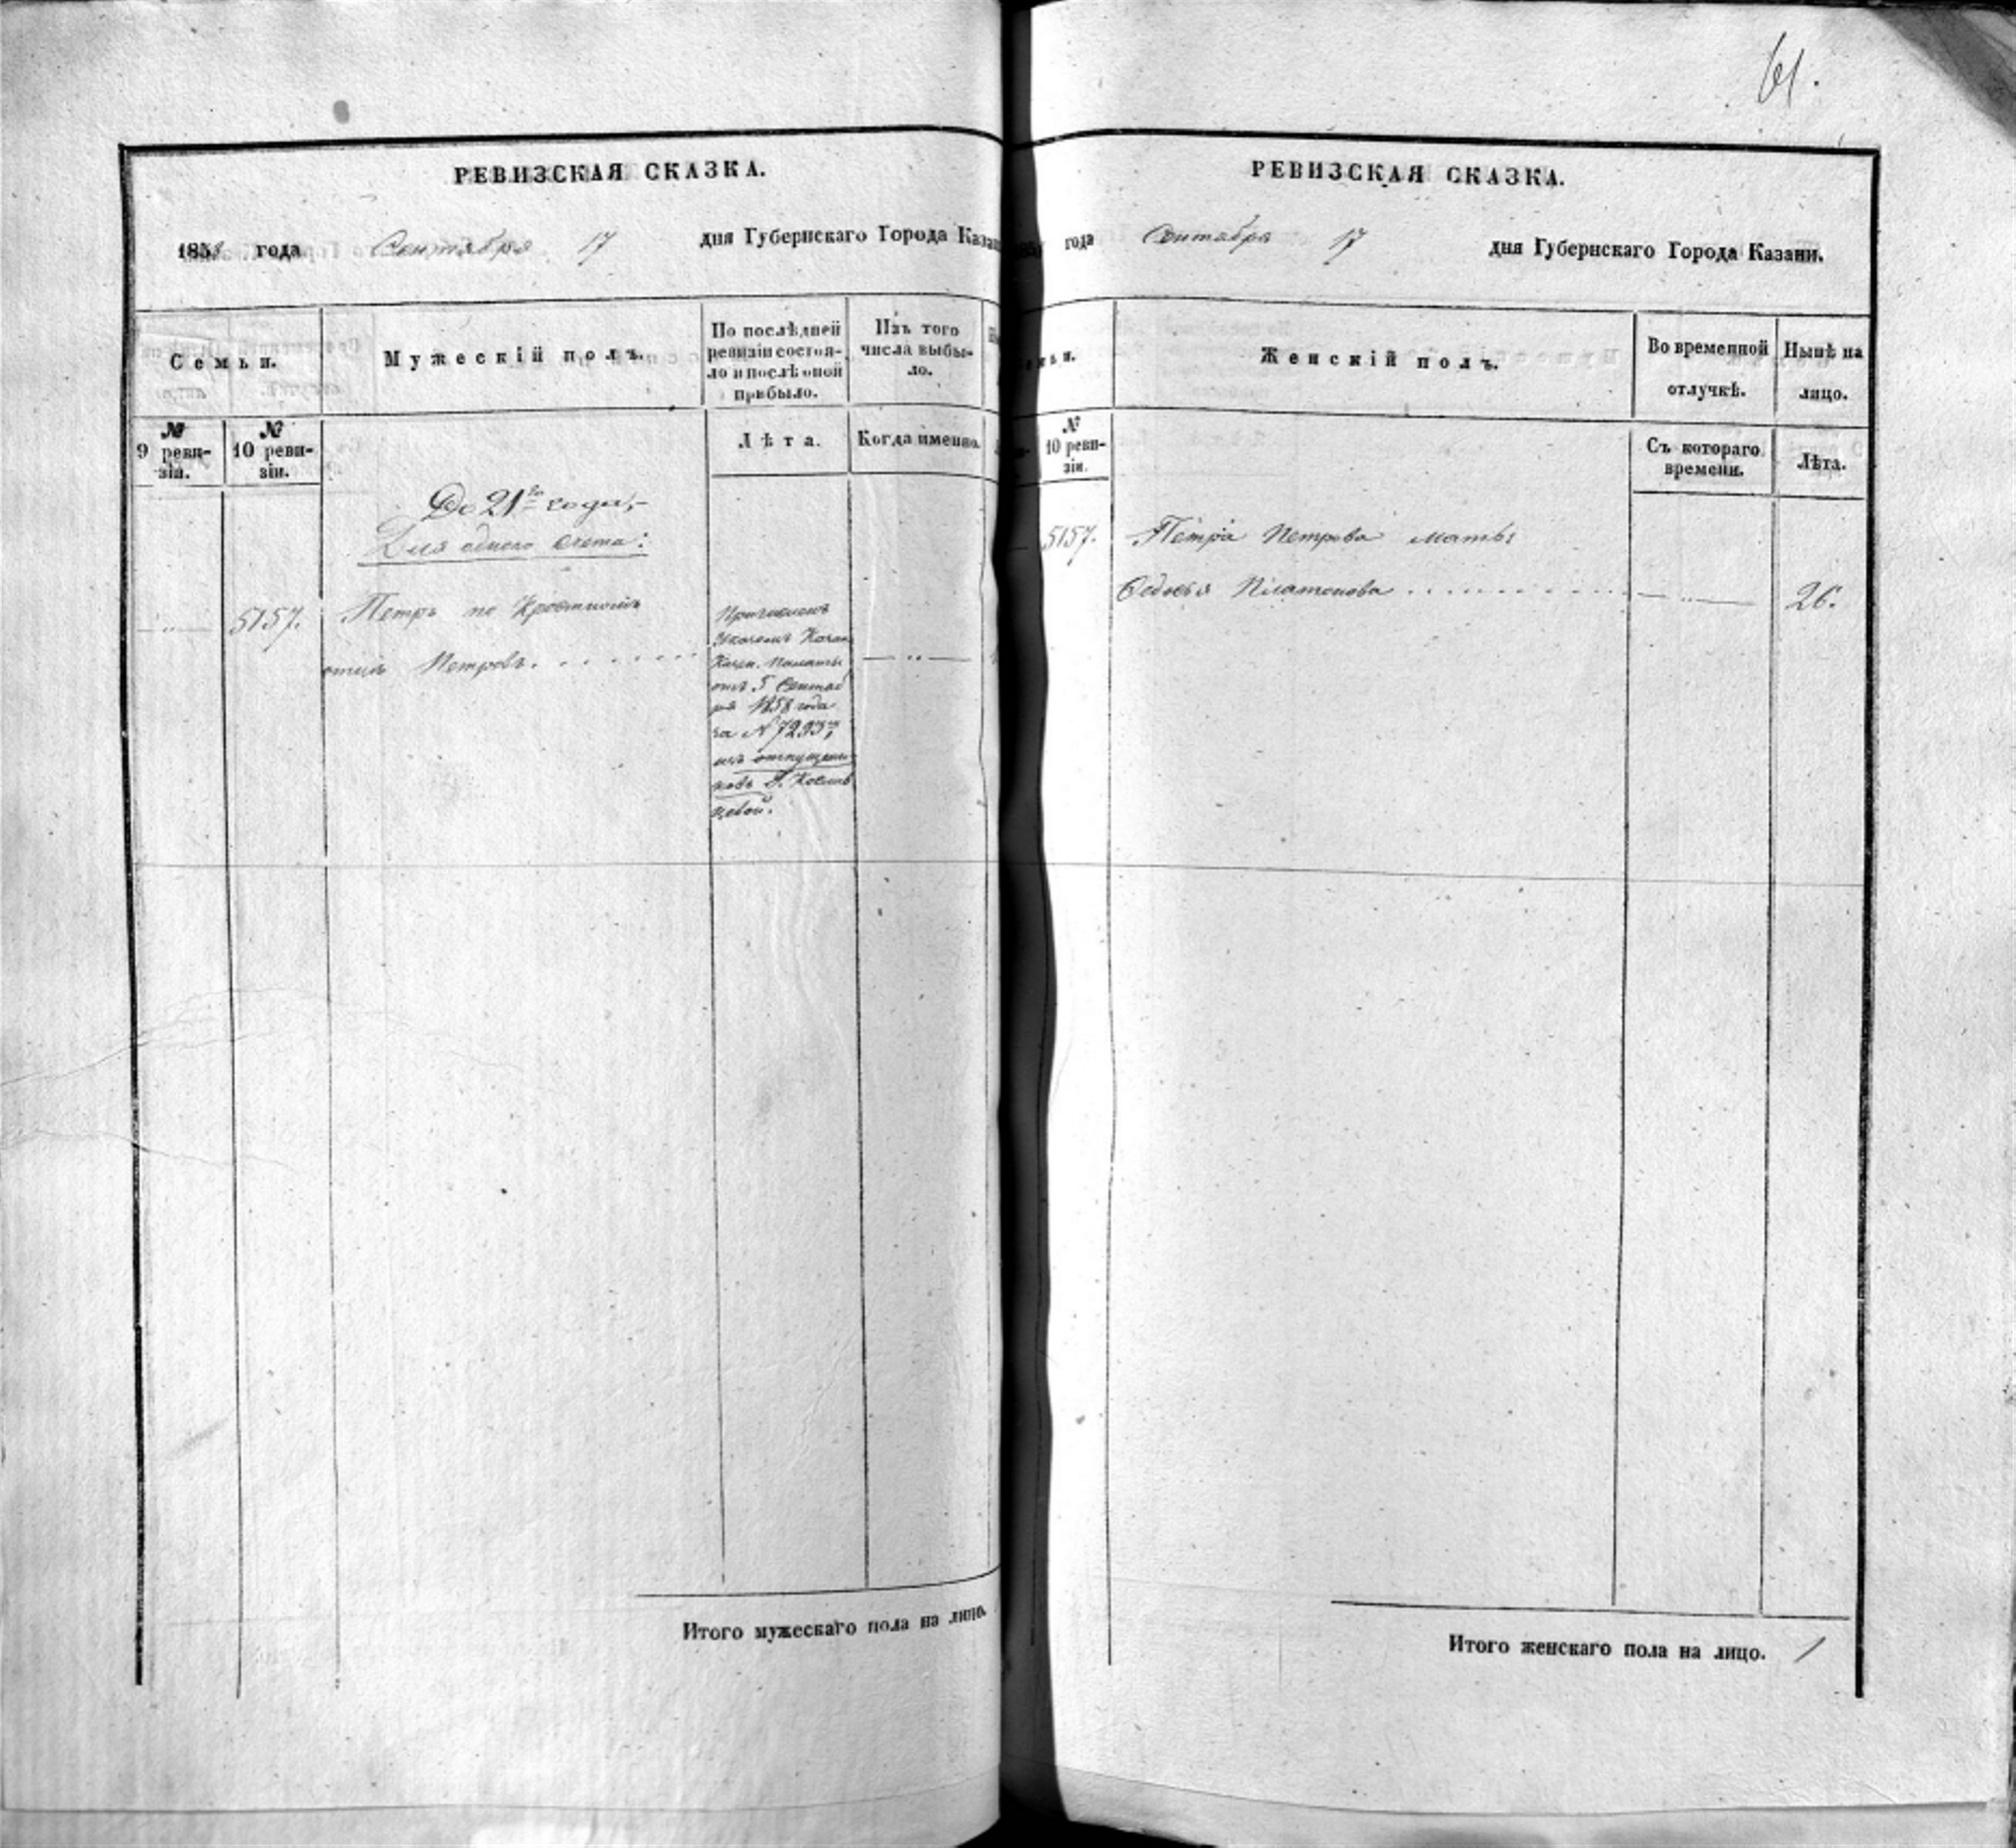 РЕВИЗСКАЯ СКАЗКА.
1858 года Сентября 17 дня Губернскаго Города Казан
Семьи.
Мужескій полъ.
По послѣдней
ревизіи состоя-
ло и послѣ оной
прибыло.
Изъ того
числа выбы-
ло.
№
9 реви-
зіи.
№
10 реви-
зіи.
Лѣта.
Когда именно.
До 21го года,-
Для одного счета:
5157.
Петръ по Крестному
отцу Петровъ.
Причисленъ
Указомъ Казан
Казен. Палаты
отъ 5 Сентяб
ря 1858 года
за № 7293,
изъ отпущен
никовъ Г.
Итого мужескаго пола на лицо.
61.
РЕВИЗСКАЯ СКАЗКА.
года Сентября 17 дня Губернскаго Города Казани.
Женскій полъ.
Во временной
отлучкѣ.
Нынѣ на
лицо.
№
10 реви-
зіи.
Съ котораго
времени.
Лѣта.
5157.
Петра Петрова мать
Федосья Платонова
26.
Итого женскаго пола на лицо. 1